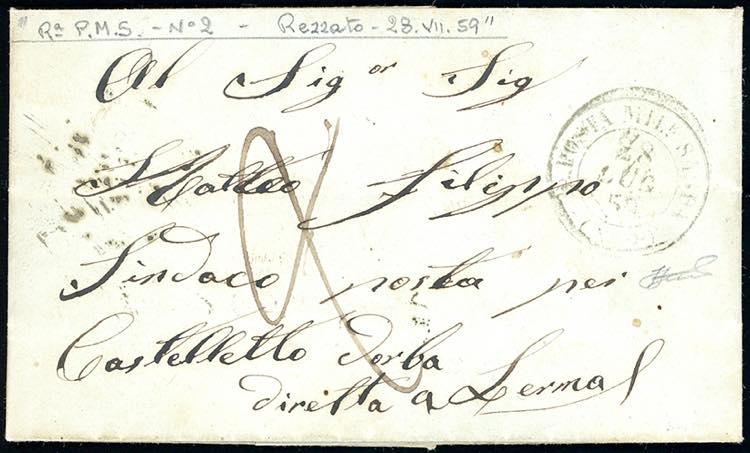 "Rª P.M.S. - Nº 2 - Rezzato - 28.VII.59"
Al Sigor Sig
Matteo Filippo
Sindaco posta per
Castelletto Dorba
diretta a Lerma
POSTA MILE S
28
LUG
59